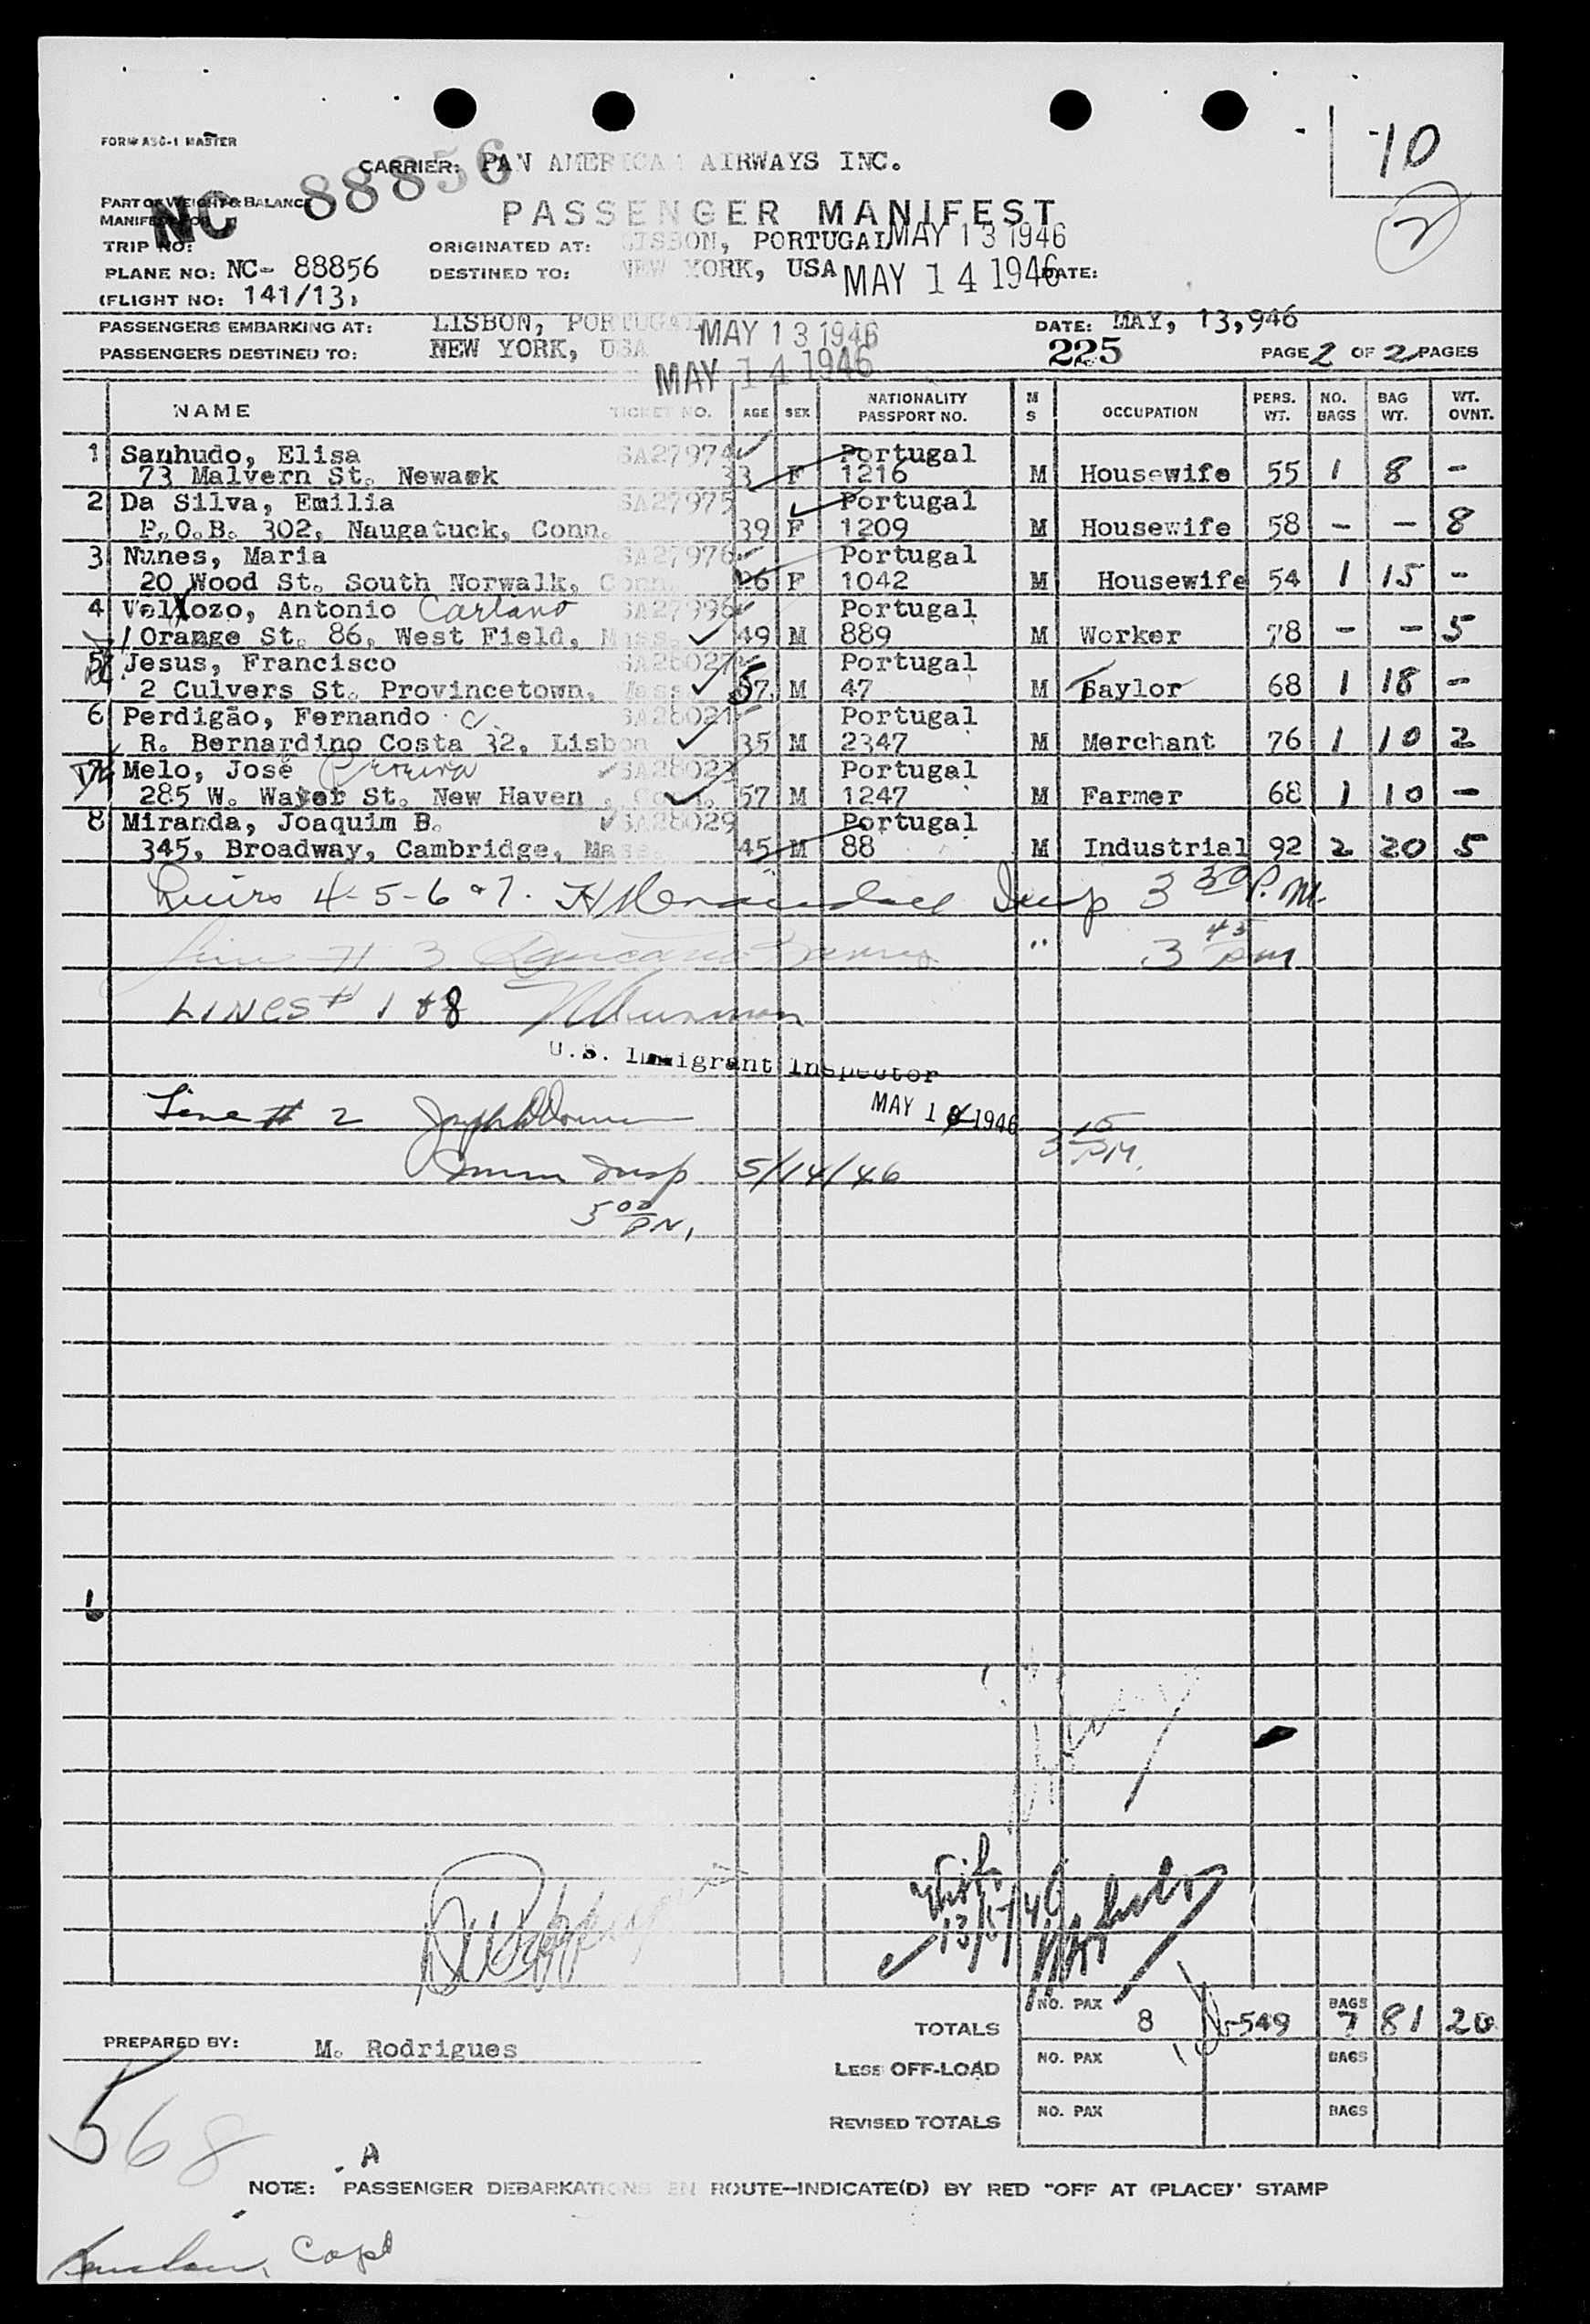 10
2
FORM ASC-1 MASTER
CARRIER: PAN AMERICAN AIRWAYS INC.
NC 88856
PART OF WEIGHT & BALANCE
MANIFEST FOR
PASSENGER MANIFEST
TRIP NO: ORIGINATED AT: LISBON, PORTUGAL MAY 13 1946
PLANE NO: NC- 88856 DESTINED TO: NEW YORK, USA MAY 14 1946 DATE:
(FLIGHT NO: 141/13)
PASSENGERS EMBARKING AT: LISBON, PORTUGAL MAY 13 1946 DATE: MAY, 13,946
PASSENGERS DESTINED TO: NEW YORK, USA MAY 14 1946 225 PAGE 2 OF 2 PAGES
NAME TICKET NO. AGE SEX NATIONALITY PASSPORT NO. M S OCCUPATION PERS. WT. NO. BAGS BAG WT. WT. OVNT.
1 Sanhudo, Elisa SA27974 Portugal
73 Malvern St. Newark 33 F 1216 M Housewife 55 1 8 -
2 Da Silva, Emilia SA27975 Portugal
P.O.B. 302, Naugatuck, Conn. 39 F 1209 M Housewife 58 - - 8
3 Nunes, Maria SA27976 Portugal
20 Wood St. South Norwalk, Conn. 26 F 1042 M Housewife 54 1 15 -
4 Vellozo, Antonio Carlano SA27996 Portugal
Orange St. 86, West Field, Mass. 49 M 889 M Worker 78 - - 5
5 Jesus, Francisco SA28027 Portugal
2 Culvers St. Provincetown, Mass. 57 M 47 M Taylor 68 1 18 -
6 Perdigão, Fernando C. SA28021 Portugal
R. Bernardino Costa 32, Lisbon 35 M 2347 M Merchant 76 1 10 2
7 Melo, José Pereira SA28023 Portugal
285 W. Water St. New Haven, Conn. 57 M 1247 M Farmer 68 1 10 -
8 Miranda, Joaquim B. SA28029 Portugal
345, Broadway, Cambridge, Mass. 45 M 88 M Industrial 92 2 20 5
4-5-6 & 7. Insp 3 30 P.M.
Line # 3 " 3 45 PM
LINES # 1 & 8
U.S. Immigrant Inspector
MAY 14 1946
Line # 2 3 15 PM.
Imm Insp 5/14/46
5 00 PM.
13/5/46
TOTALS NO. PAX 8 549 BAGS 7 81 20
PREPARED BY: M. Rodrigues
LESS OFF-LOAD NO. PAX BAGS
REVISED TOTALS NO. PAX BAGS
568
A
NOTE: PASSENGER DEBARKATIONS EN ROUTE—INDICATE(D) BY RED "OFF AT (PLACE)" STAMP
Capt